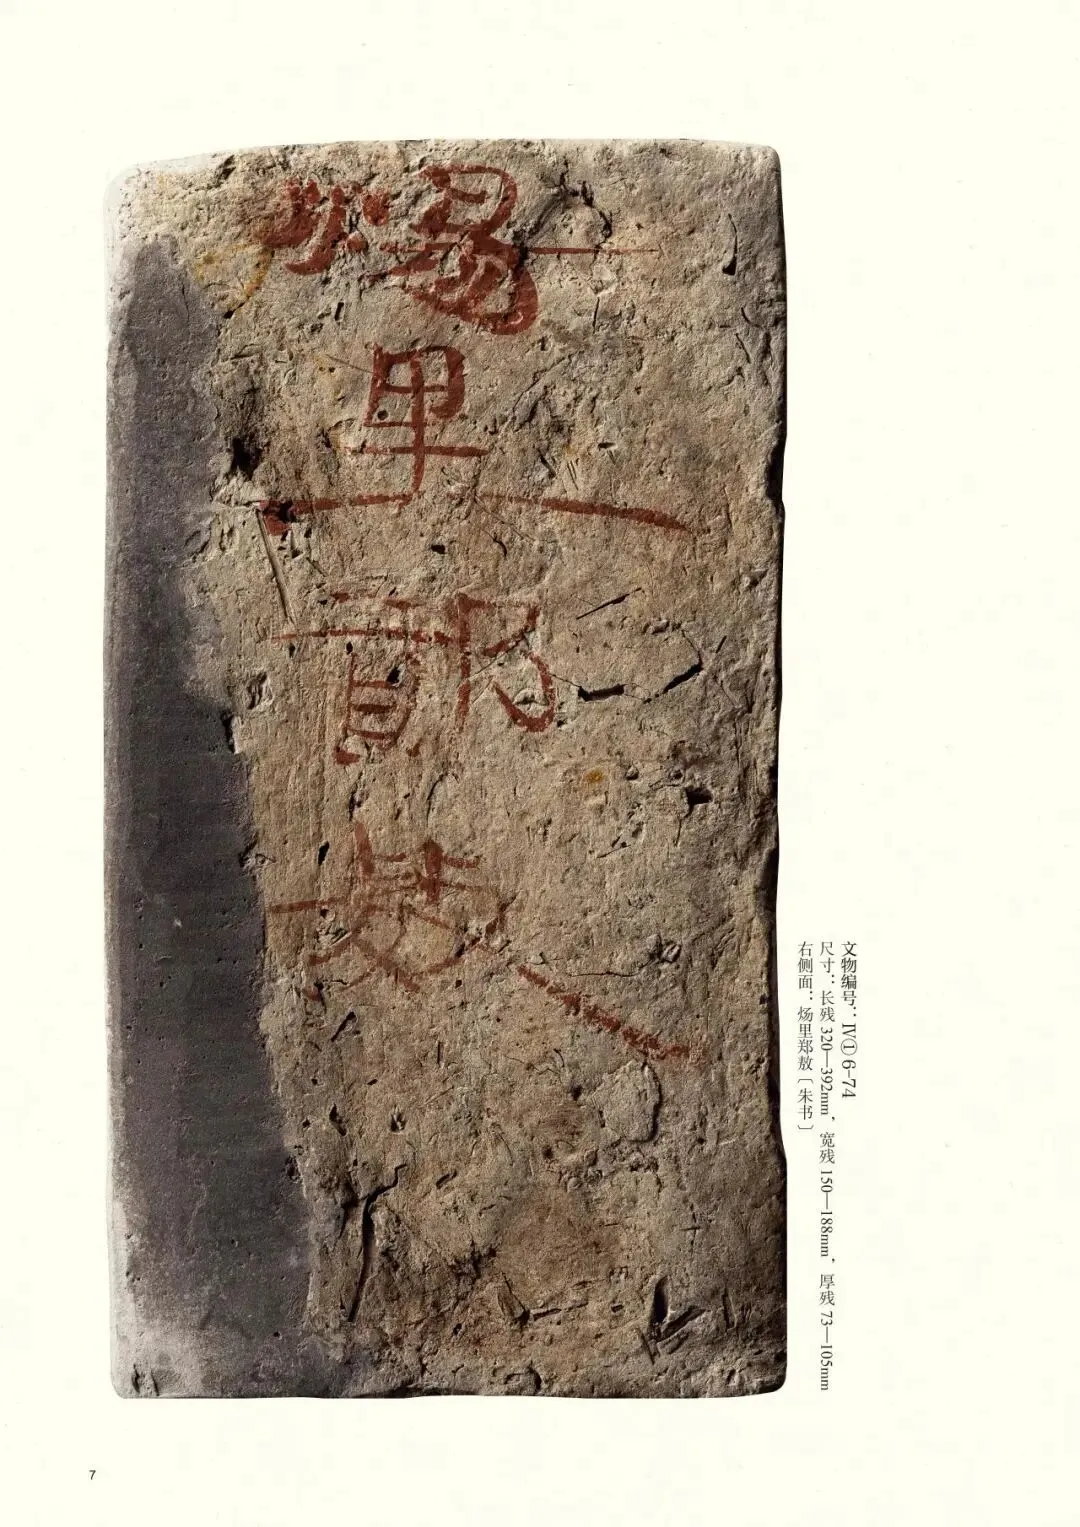 文物编号：Ⅳ①6-74
尺寸：长残 320—392mm，宽残 150—188mm，厚残 73—105mm
右侧面：炀里郑敖〔朱书〕
煬里鄭敖
7